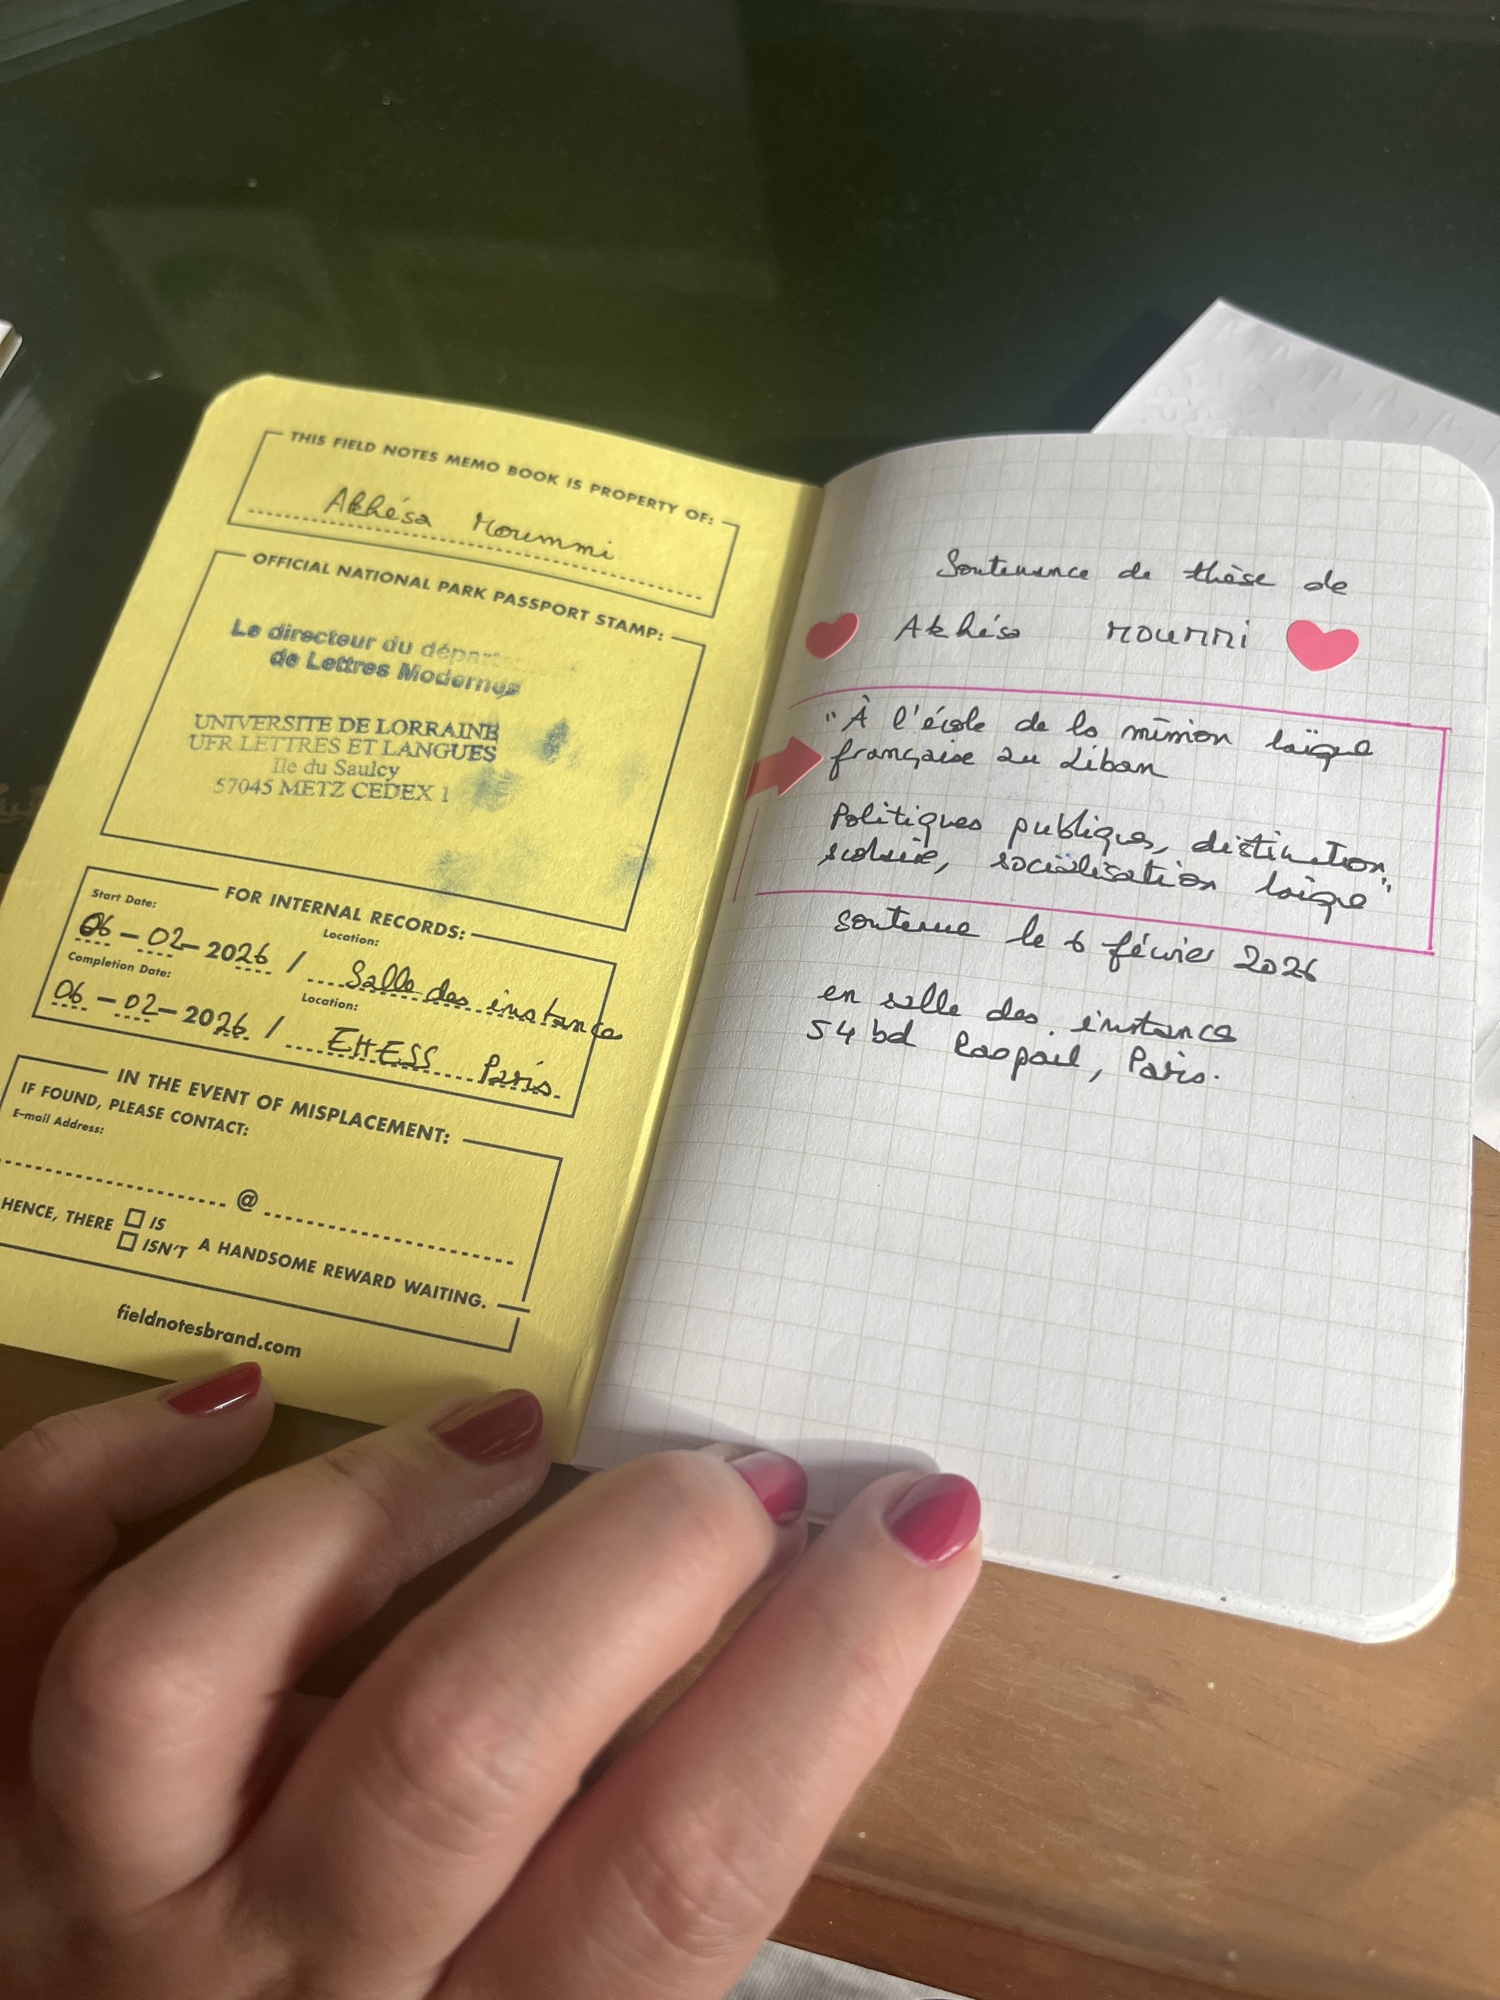 THIS FIELD NOTES MEMO BOOK IS PROPERTY OF:
Akhésa Moummi
OFFICIAL NATIONAL PARK PASSPORT STAMP:
Le directeur du département
de Lettres Modernes
UNIVERSITE DE LORRAINE
UFR LETTRES ET LANGUES
Ile du Saulcy
57045 METZ CEDEX 1
FOR INTERNAL RECORDS:
Start Date:
Location:
06-02-2026 / Salle des instances
Completion Date:
Location:
06-02-2026 / EHESS Paris.
IN THE EVENT OF MISPLACEMENT:
IF FOUND, PLEASE CONTACT:
E-mail Address:
@
HENCE, THERE IS
ISN'T A HANDSOME REWARD WAITING.
fieldnotesbrand.com
Soutenance de thèse de
Akhésa MOUMMI
"À l'école de la mission laïque
française au Liban
Politiques publiques, distinction
scolaire, socialisation laïque"
soutenue le 6 février 2026
en salle des instances
54 bd Raspail, Paris.